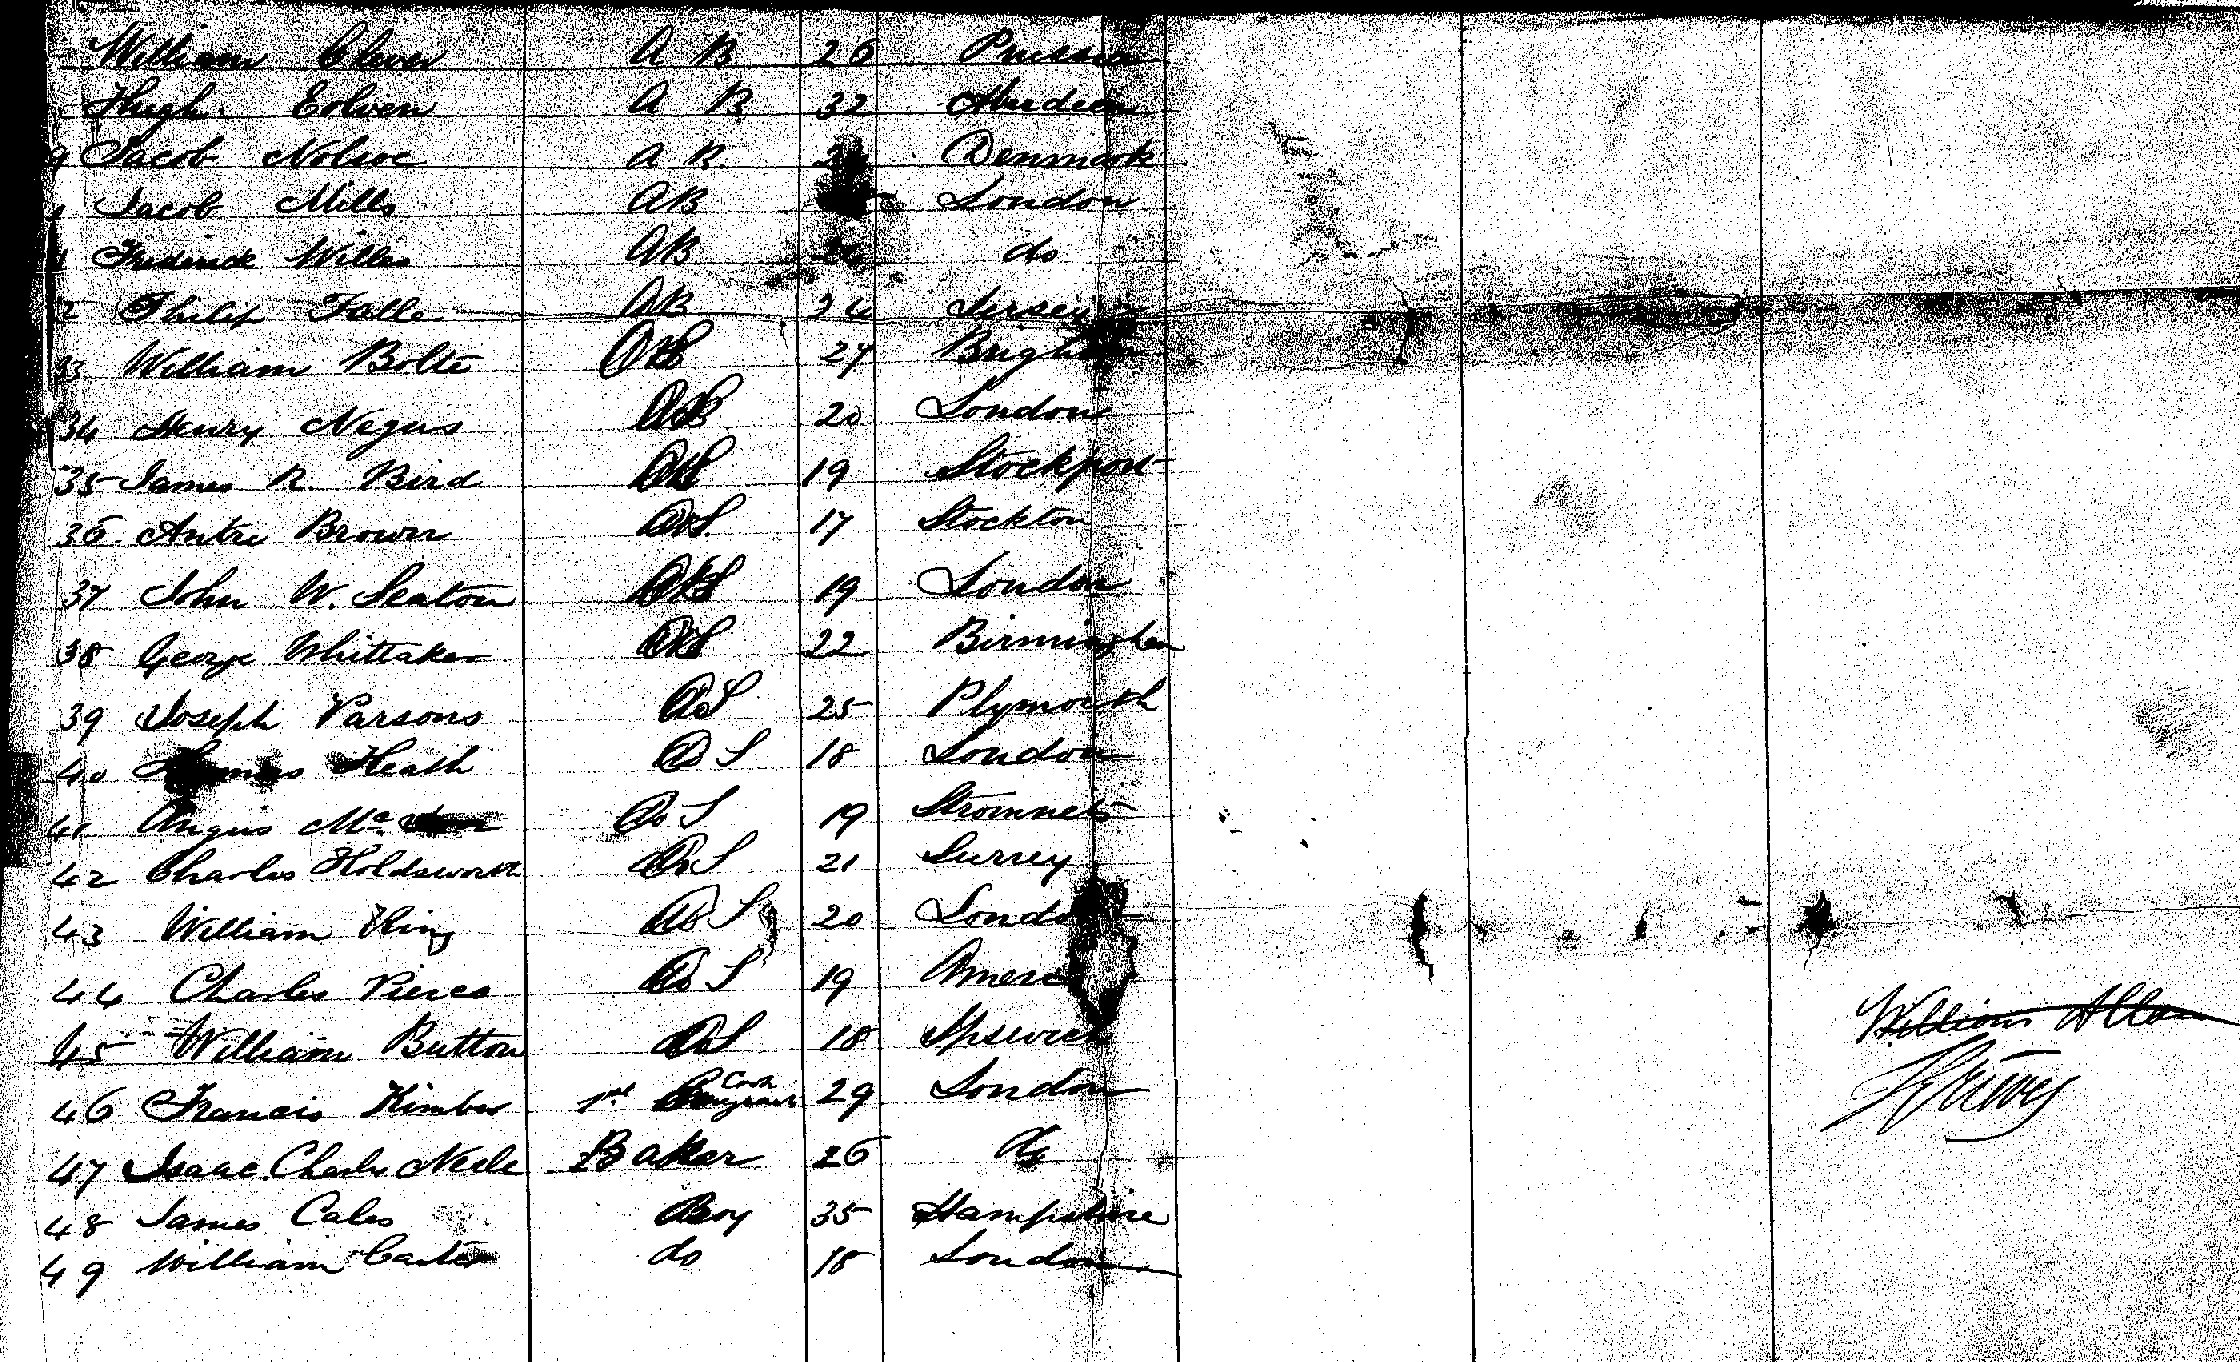 William Clever A B 26 Prussia
Hugh Eolven A B 32 Aberdeen
9 Jacob Nolsoe A B Denmark
Jacob Mills AB London
Frederick Willis AB do
2 Philip Falle AB 24 Jersey
33 William Bolte OS 27
34 Henry Negus 20 London
35 James R. Bird OS 19 Stockport
36. Antre Brown OS. 17 Stockton
37 John W. Seaton OS 19 London
38 George Whittaker OS 22 Birmingham
39 Joseph Parsons OS 25 Plymouth
40 Thomas Heath OS 18 London
41 Angus Mc OS 19 Stromness
42 Charles Holdsworth OS 21 Surrey
43 William King OS 20 London
44 Charles Pierce OS 19
45 William Button OS 18 Ipswich
46 Francis Kimber 1st Cook 29 London
47 Isaac Charles Neele Baker 26 do
48 James Cales Boy 35 Hampshire
49 William Carter do 18 London
William Allan